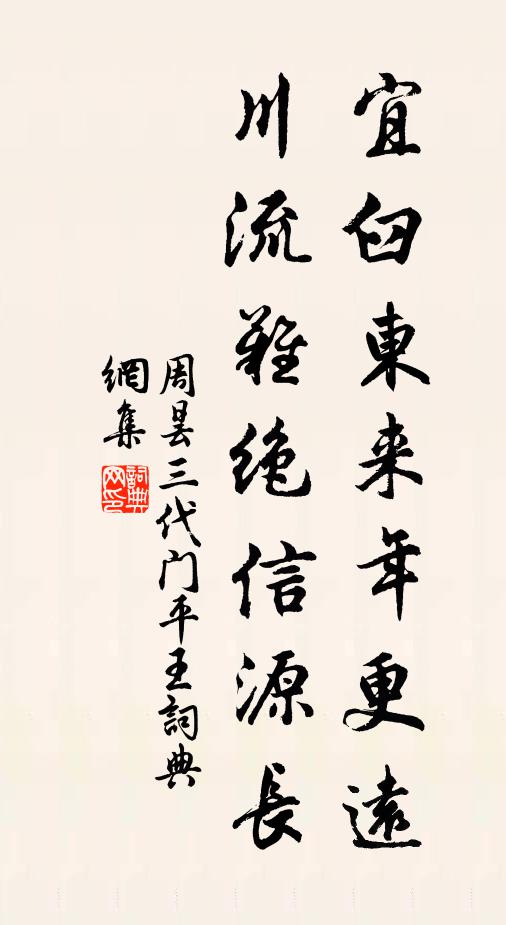 宜臼東来年更遠
川流難絶信源長
周昙三代门平王詞典
網集
詞典网印